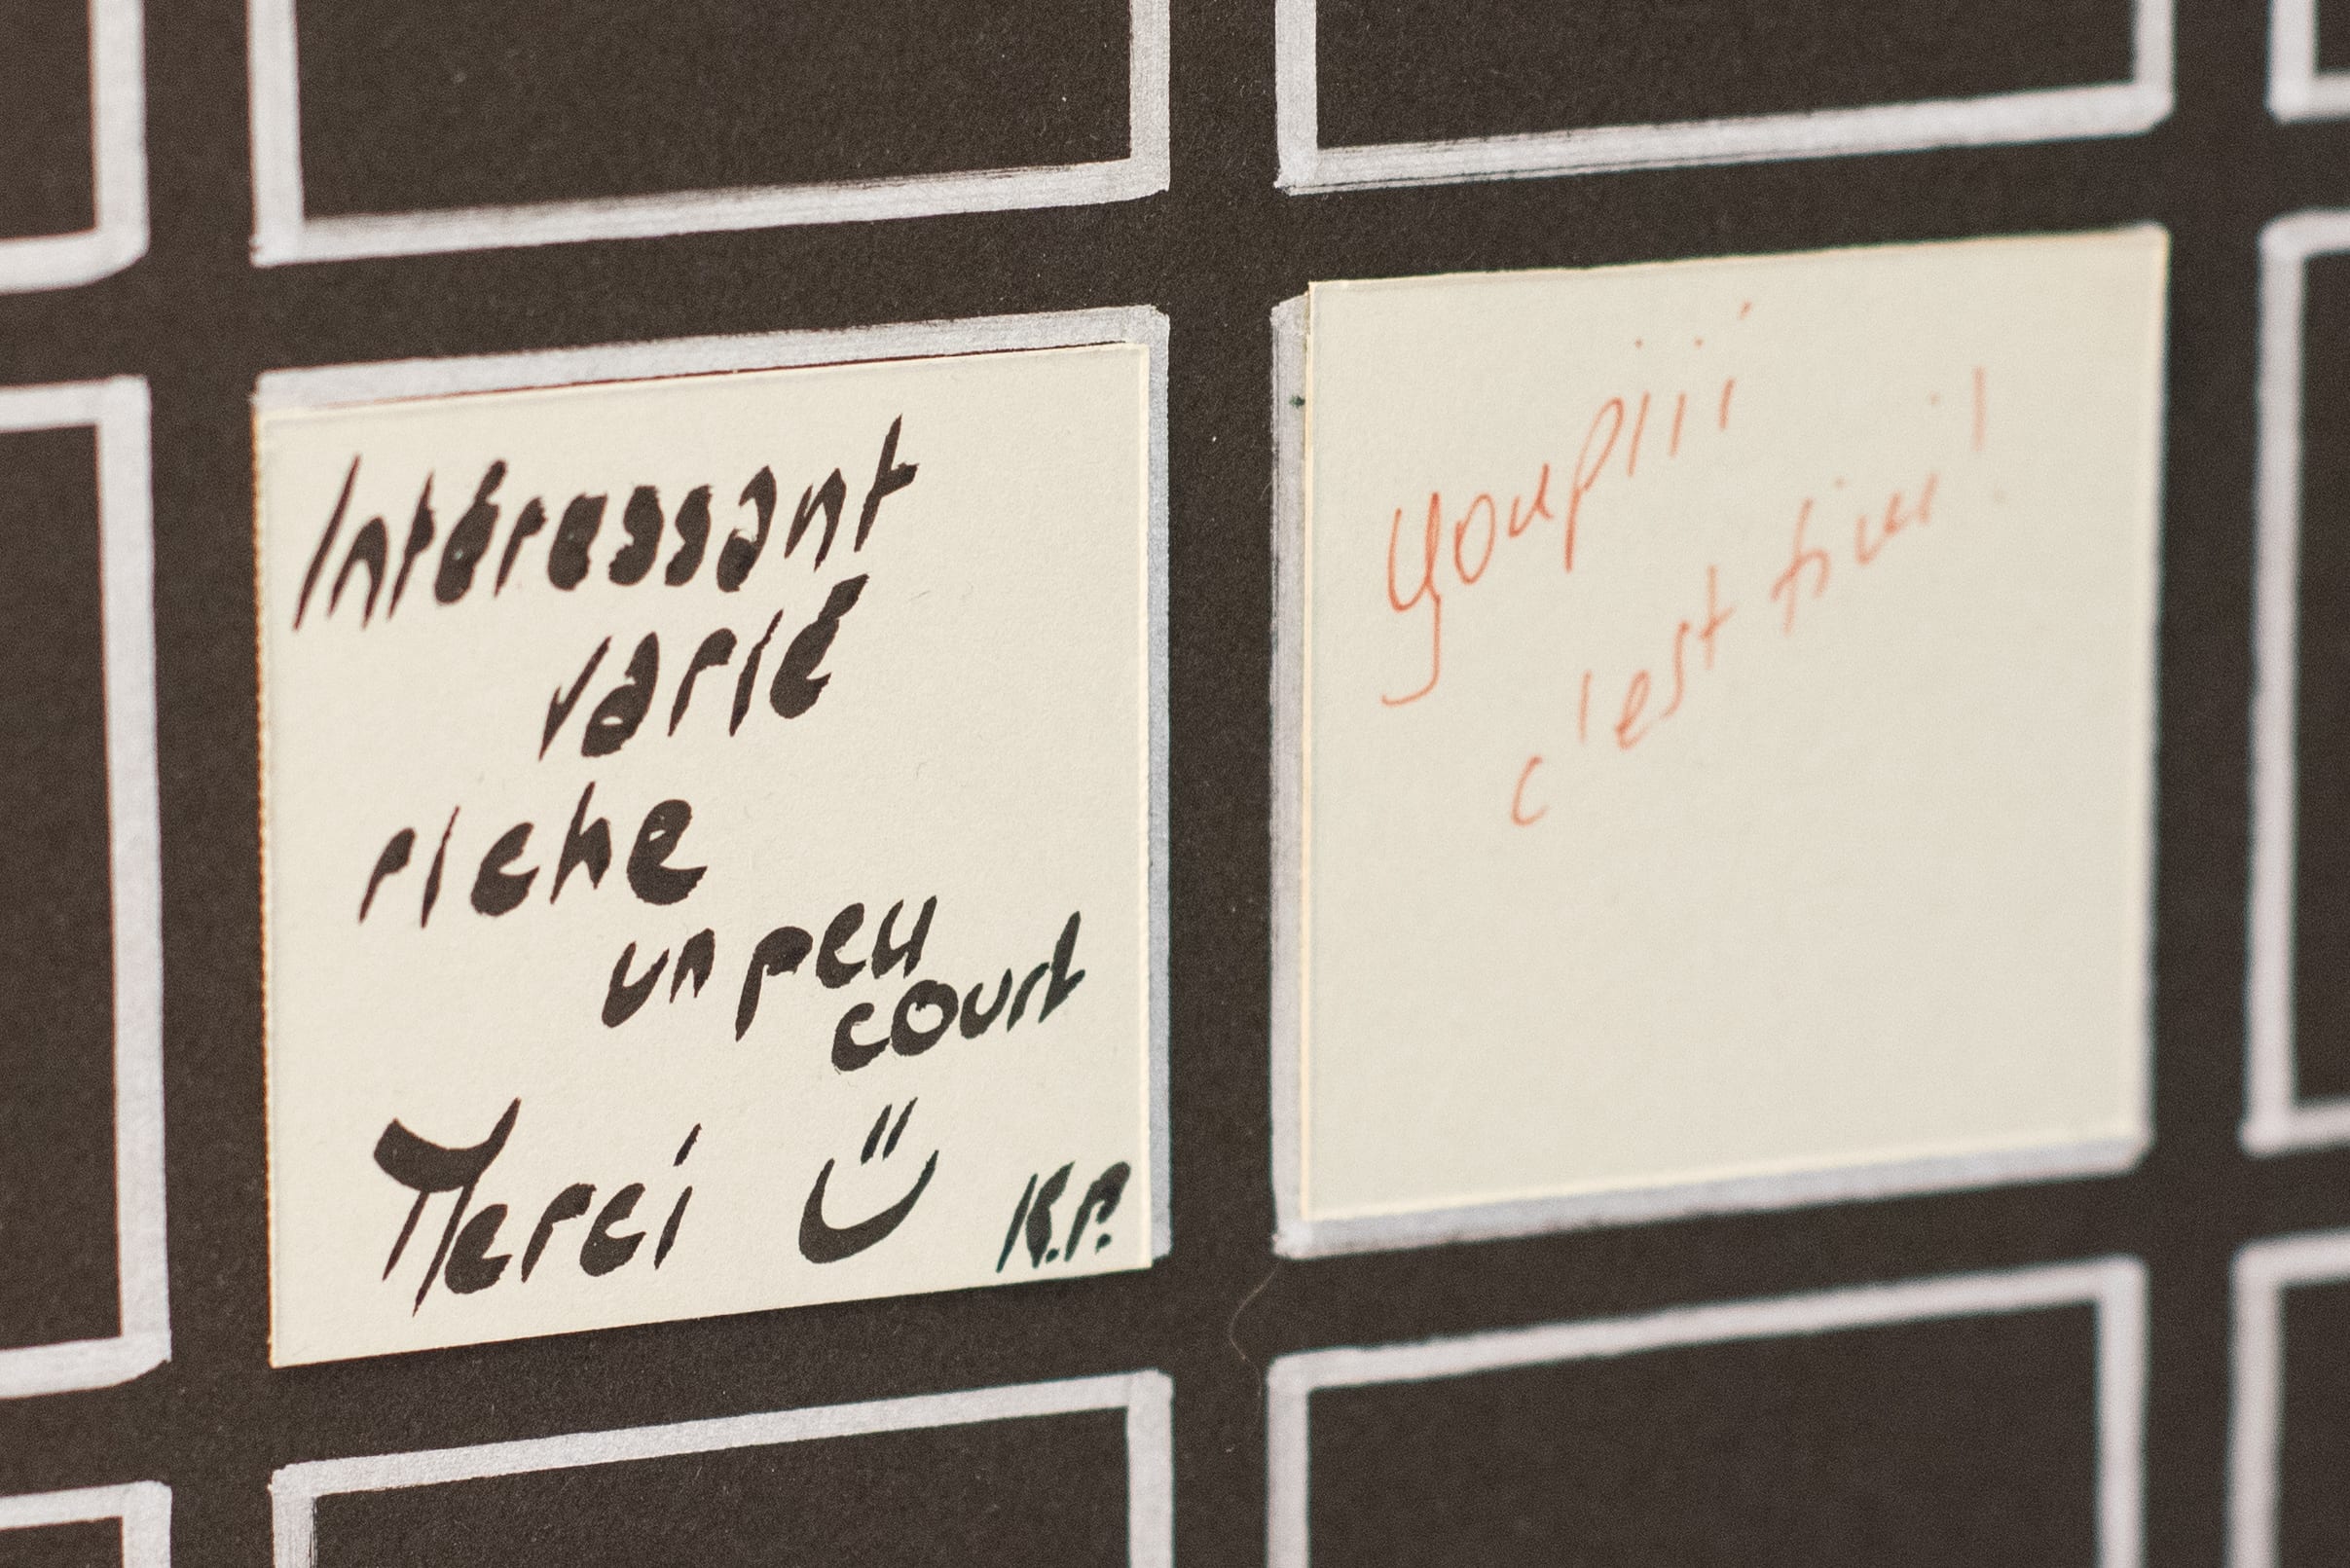 Intéressant
varié
riche
un peu
court
Merci K.P.
youpiii
c'est fini!